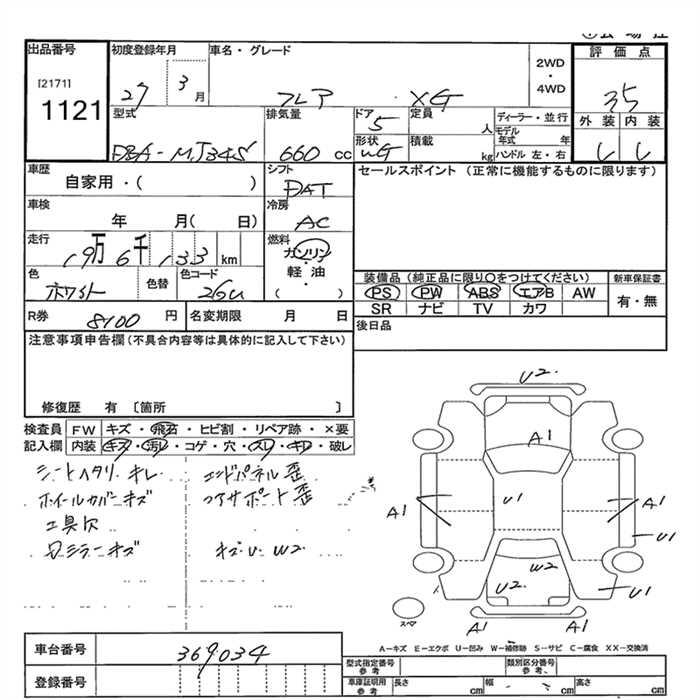 出品番号
[2171]
1121
初度登録年月
27 3 月
車名・グレード
フレア XG
2WD
・
4WD
評価点
3.5
外装 内装
型式
DBA-MJ34S
排気量
660 cc
ドア
5
形状
定員
人
積載
kg
ディーラー・並行
モデル年式 年
ハンドル 左・右
車歴
自家用・( )
シフト
DAT
セールスポイント (正常に機能するものに限ります)
車検
年 月( 日)
冷房
AC
走行
19万6千133 km
燃料
ガソリン
軽・油
( ・ )
色
ホワイト
色替
色コード
26U
装備品(純正品に限り〇をつけてください)
新車保証書
PS PW ABS エアB AW
SR ナビ TV カワ
有・無
R券
8100 円
名変期限 月 日
後日品
注意事項申告欄(不具合内容等は具体的に記入して下さい)
修復歴 有 〔箇所 〕
検査員記入欄
FW キズ・飛石・ヒビ割・リペア跡・×要
内装 キズ・汚レ・コゲ・穴・スレ・キレ・破レ
シートヘタリ キレ
ホイールカバーキズ
工具欠
ミラーキズ
エンドパネル歪
コアサポート歪
キズ U W2
U2
A1
U1
A1
A1
U1
W2
U2
U1
A1
A1
スペア
A-キズ E-エクボ U-凹み W-補修跡 S-サビ C-腐食 XX-交換済
車台番号
369034
登録番号
型式指定番号
参考
類別区分番号
参考
車庫証明用
参考
長さ cm
幅 cm
高さ cm